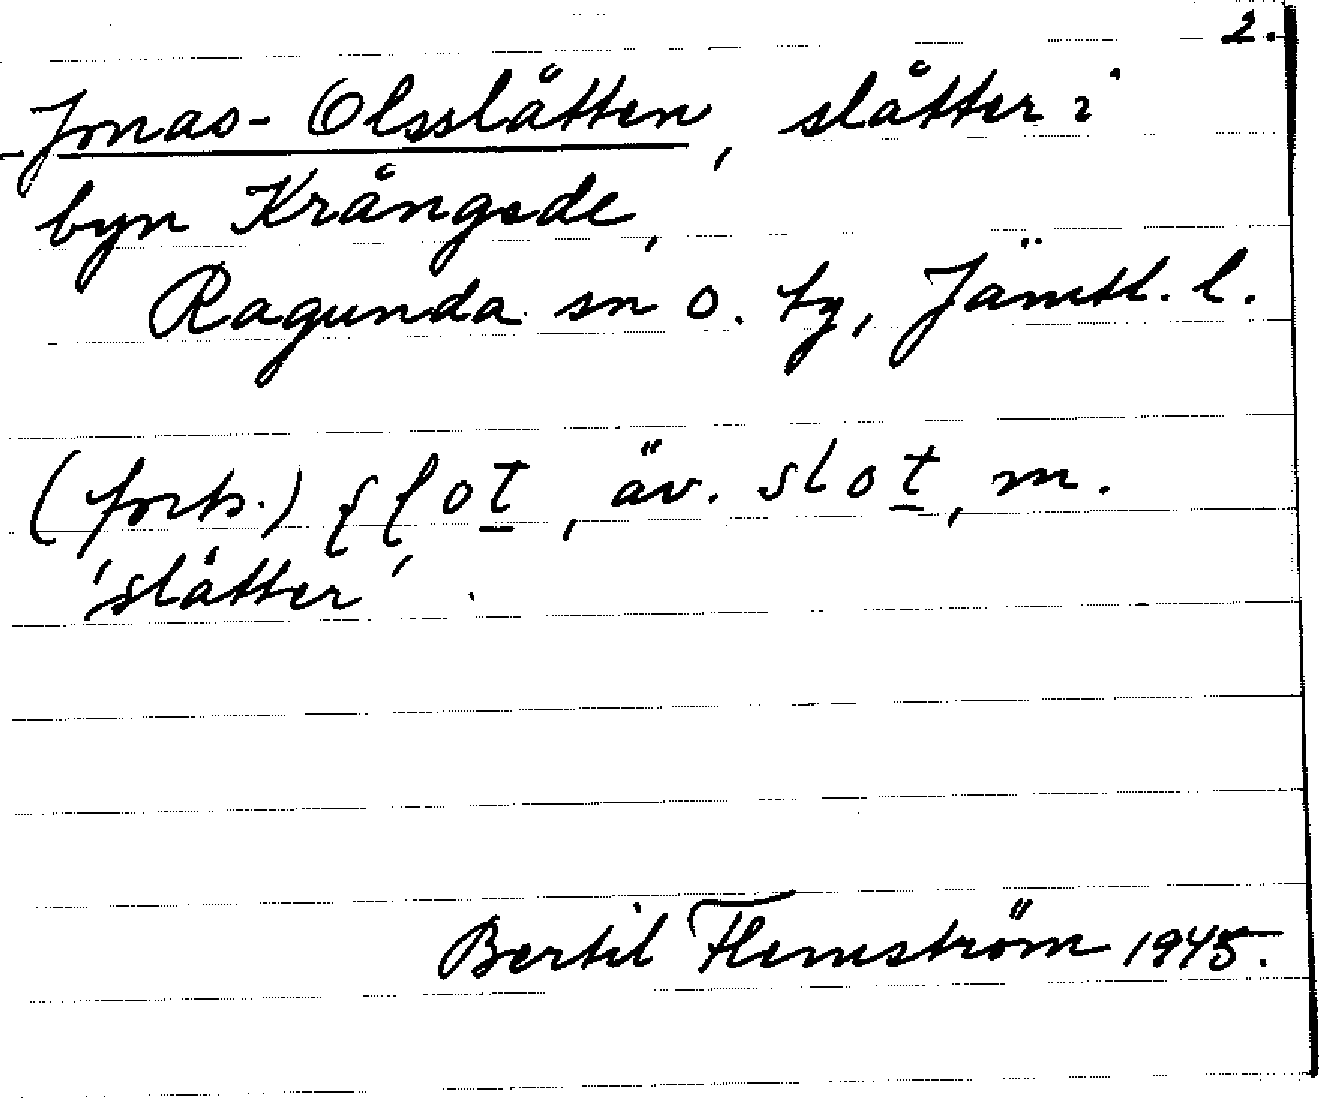 2.
Jonas-Olsslåtten, slåtter i
byn Krångede,
Ragunda sn o. tg, Jämtl. l.
(forts.) ʃʃot, äv. slot, m.
'slåtter'.
Bertil Flemström 1945.